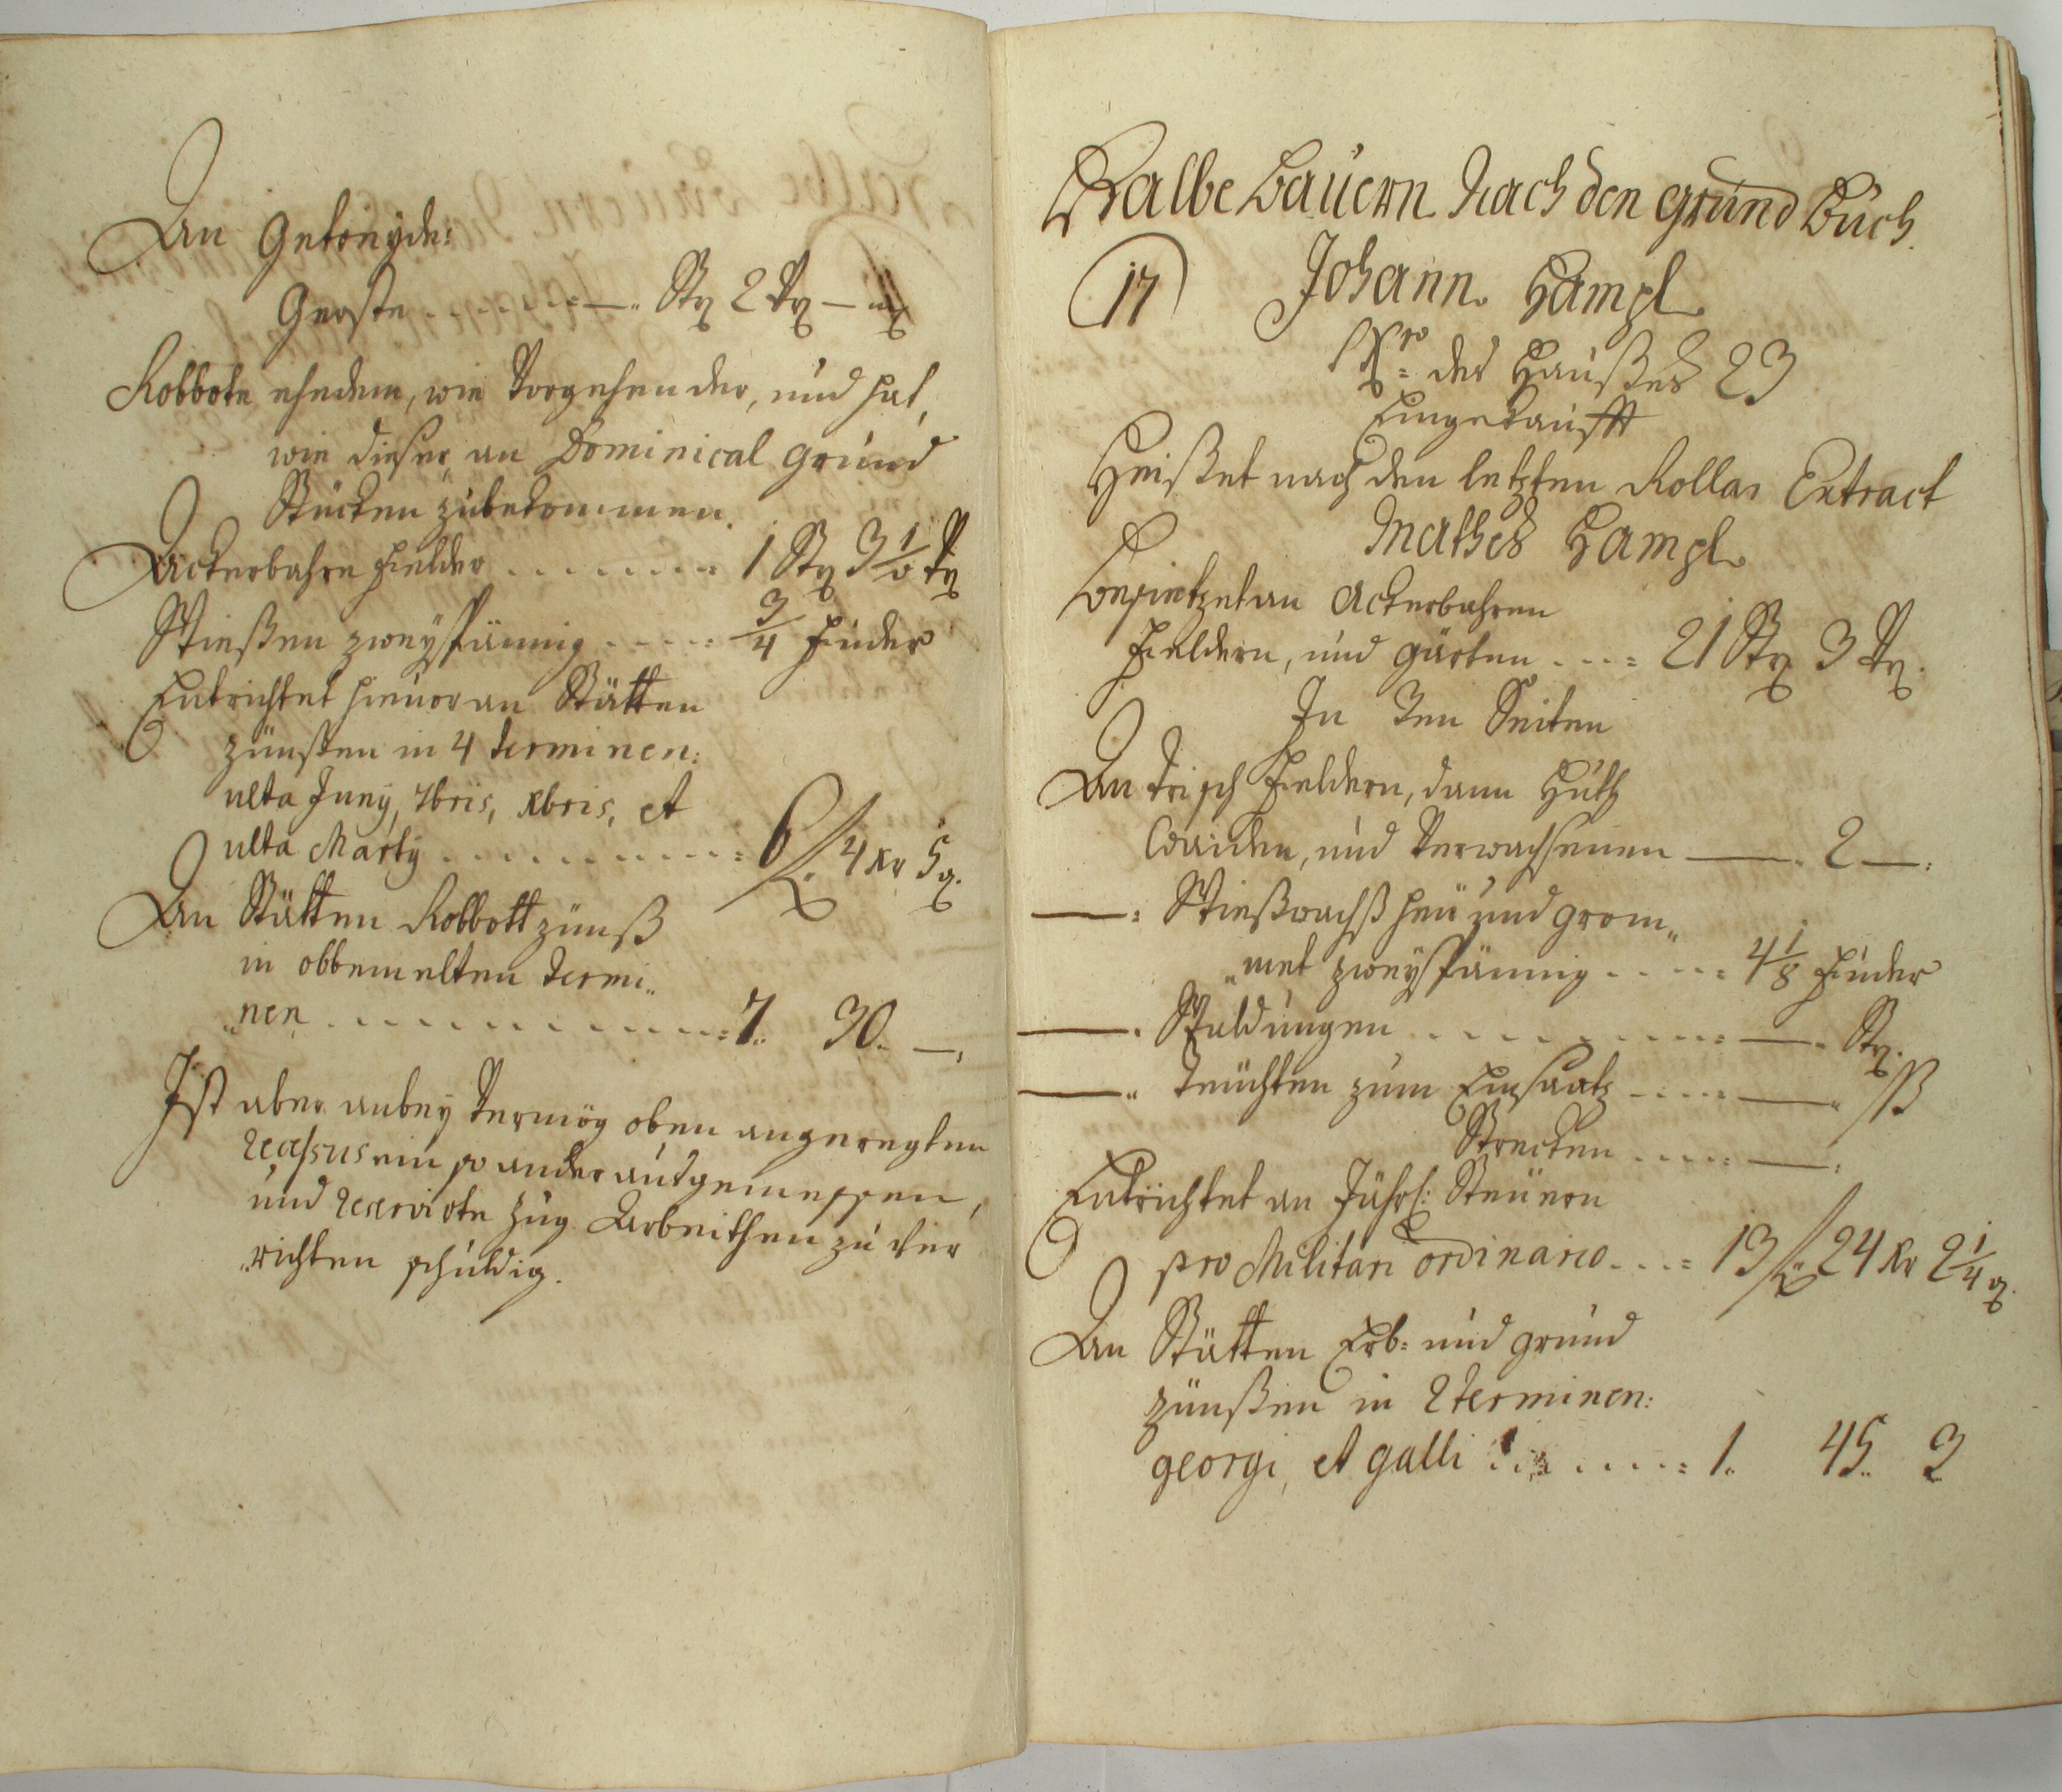 An Getreyde:
Gerste . . . . . . . —. Str 2 Vr — 
Robbote ehedem, wie Vorgehender, und hat,
wie dieser, an Dominical Grund
Stücken zubekommen.
Ackerbahre Fielder . . . . . . . 1 Str 3 1/2 Vr
Wießen zweyspännig . . . . . 3/4 Fuder
Entrichtet hievor an Stätten
zünßen in 4 terminen:
ulta Juny, 7bris, xbris, et
ulta Marty . . . . . . . . . . . 6 f. 4 Kr 5 ₰.
An Stätten Robbott zünß
in obbemelten termi„
„nen . . . . . . . . . . . . . . 7. 30. —.
Ist aber anbey Vermög oben angeregten
recessus ein so ander außgemessen,
und reservirte Zug Arbeithen zu ver
„richten schuldig.
Halbe Bauern Nach den Grund Buch.
17 Johann Hampl
Nro: des Haußes 23
Eingekaufft
Heißet nach den letzten Rollar Extract
Mathes Hampl
Besietzet an Ackerbahren
Fieldern, und Gärten . . . . 21 Str 3 Vr.
In Ten Seiten
An Trisch Fieldern, dann Huth
Waiden, und Verwachsenen —. 2 —.
—: Wießwachß heu und grom„
„met zweyspännig . . . . . 4 1/8 Fuder
—. Waldungen . . . . . . . . . —. Str.
—„ Teüchten zum Einsaatz . . . . —„ ßß
Strecken . . . . . —.
Entrichtet an Jährl: Steüern
pro Militari ordinario . . . . 13 f. 24 Kr 2 1/4 ₰.
An Stätten Erb- und Grund
zünßen in 2 terminen:
georgi, et galli . . . . . . . 1. 45. 2